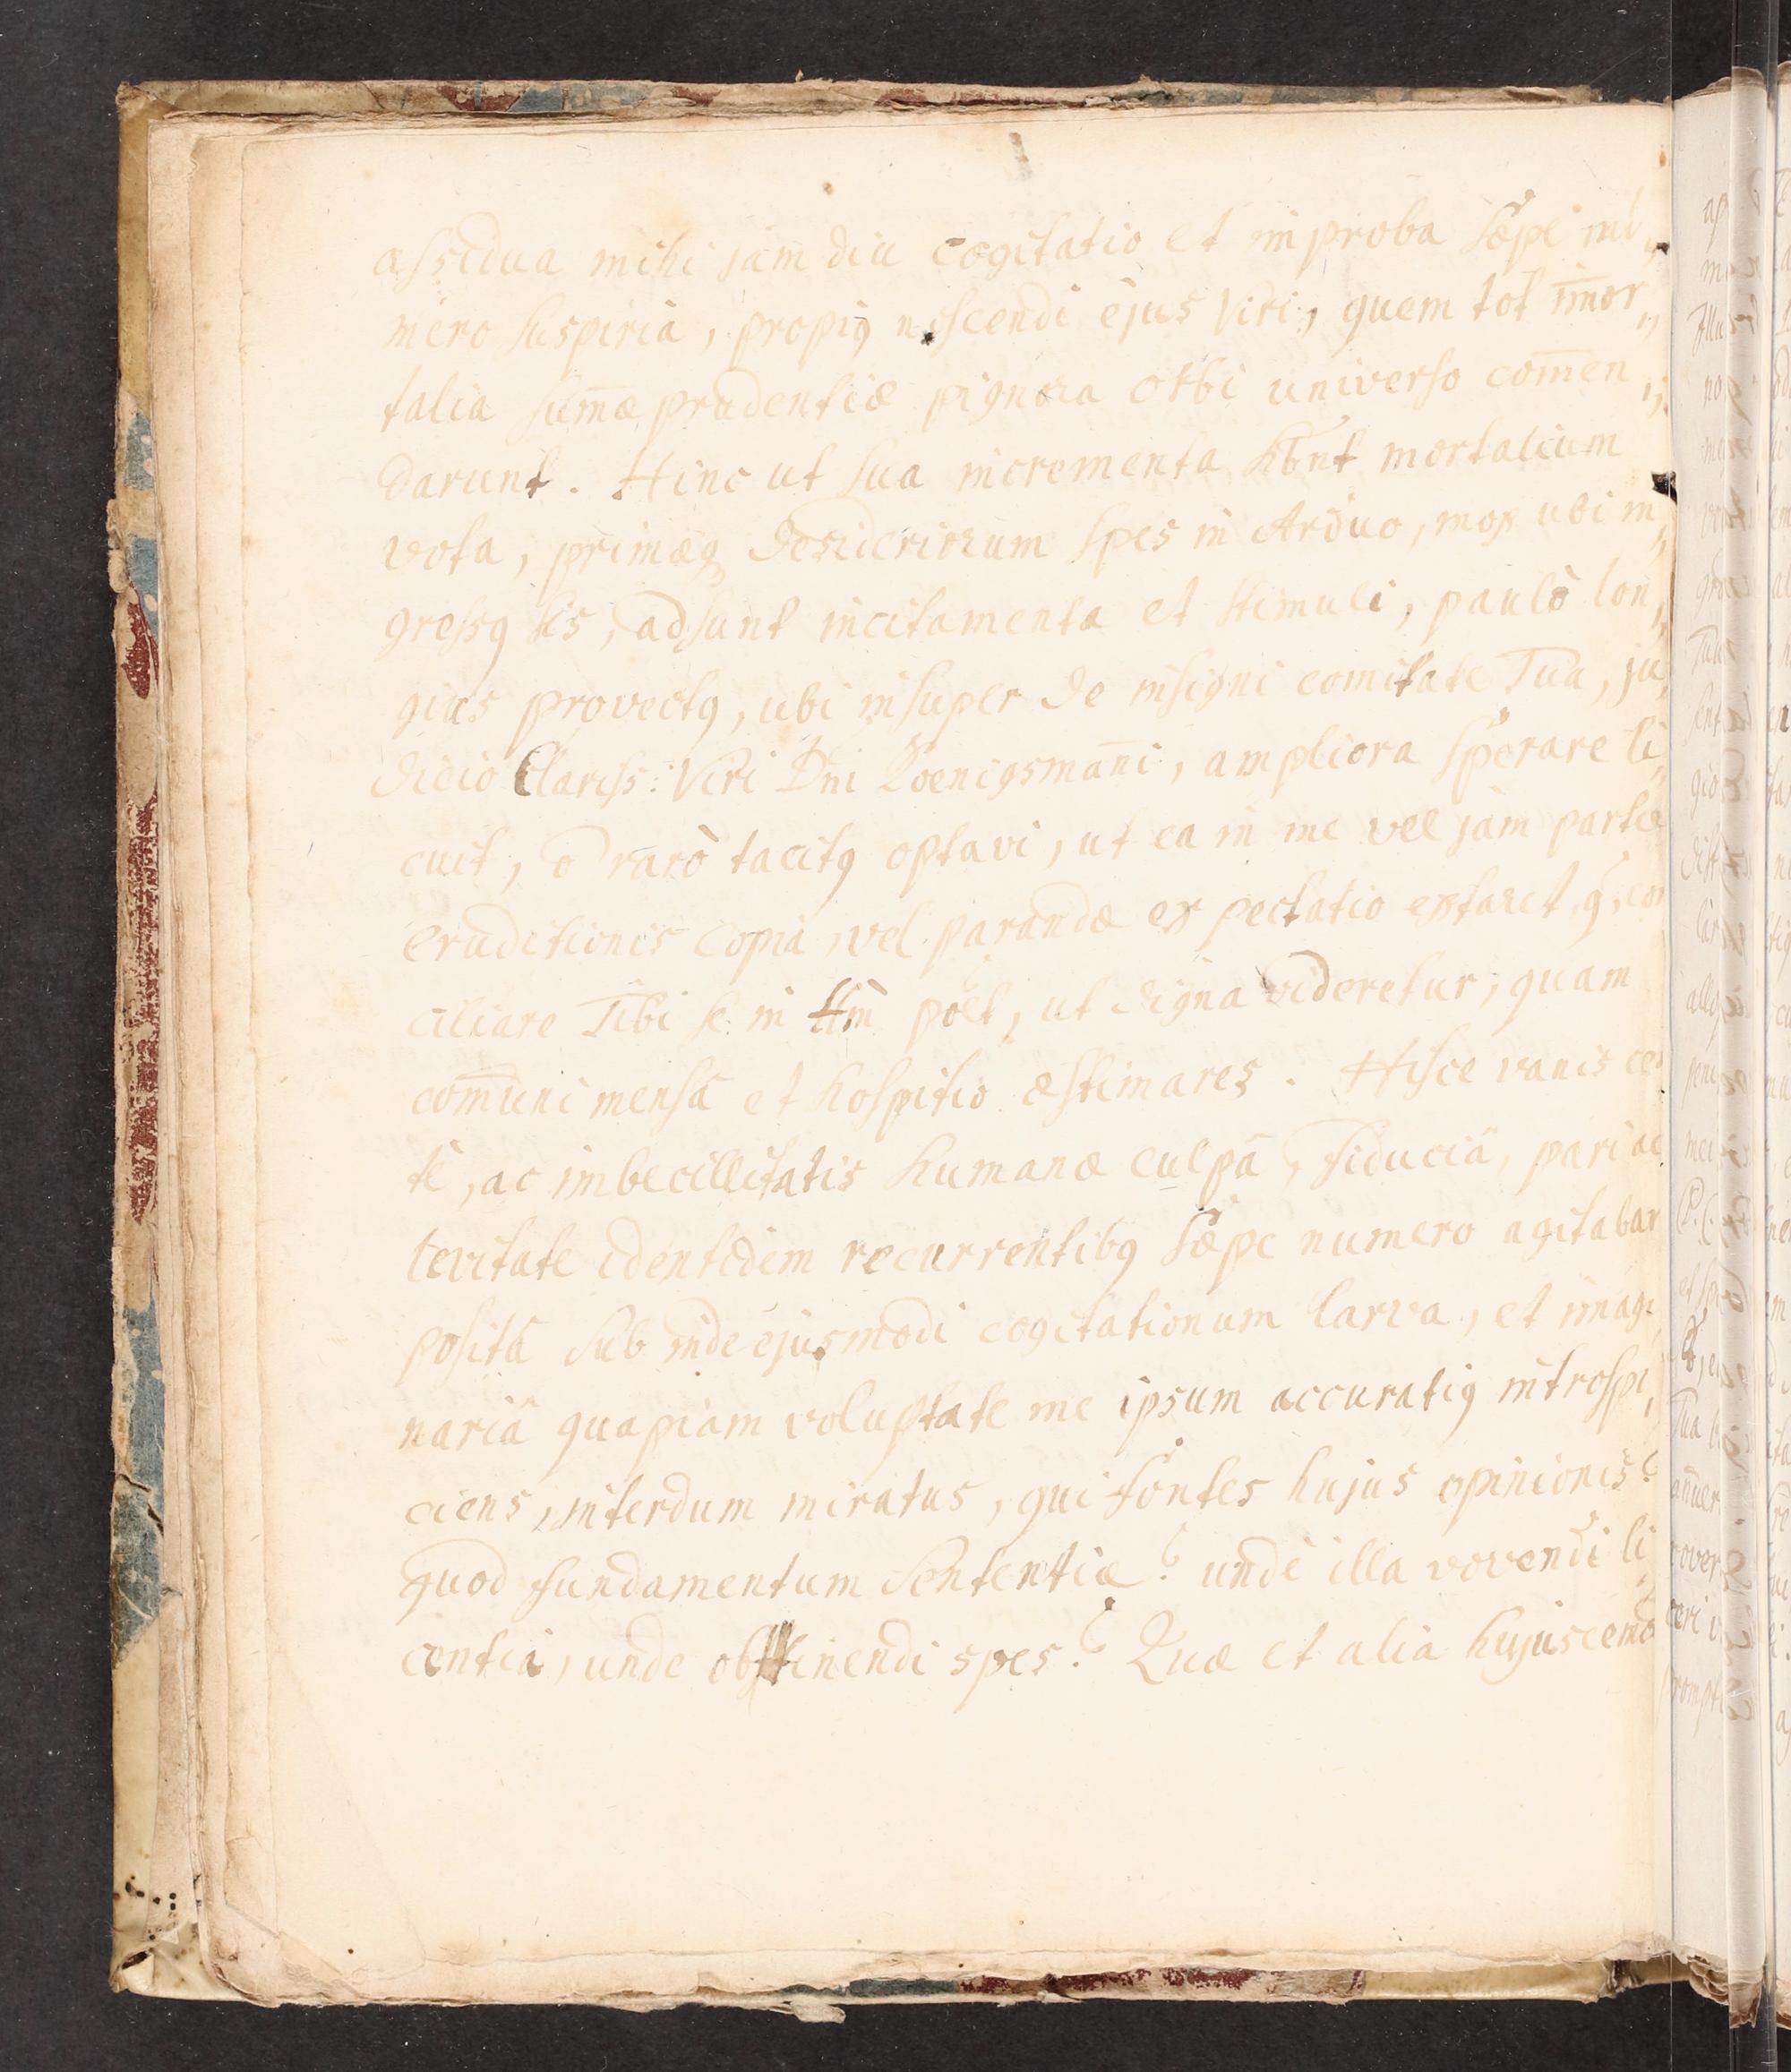 assidua mihi jam diu cogitatio et improba sæpe nu„
mero suspiria, propiq noscendi ejus Viri, quem tot im̄or„
talia sum̄æ prudentiæ pignora orbi universo com̄en„
darunt. Hinc ut sua incrementa hbnt mortalium
vota, primæq desideriorum spes in Arduo, mox ubi in„
gressq sis, adsunt incitamenta et stimuli, paulò lon„
gius provectq, ubi insuper de insigni comitate Tua, ju„
dicio Clariss: Viri Dni Koenigsmani, ampliora sperare li„
cuit, ō rarò tacitq optavi, ut ea in me vel jam partæ
eruditionis copia, vel parandæ expectatio extaret, q con
ciliare Tibi se in tm̄ pōet, ut digna videretur, quam
com̄uni mensâ et hospitio æstimares. Hisce vanis cer
tè, ac imbecillitatis humanæ culpâ, fiduciâ, pari ac
levitate identidem recurrentibq sæpe numero agitabar
positâ sub inde ejusmodi cogitationum larva, et imagi„
nariâ quapiam voluptate me ipsum accuratiq introspi„
ciens, interdum miratus, qui fontes hujus opinionis?
quod fundamentum sententiæ? unde illa vovendi li„
centia, unde obtinendi spes? Quæ et alia hujuscemo